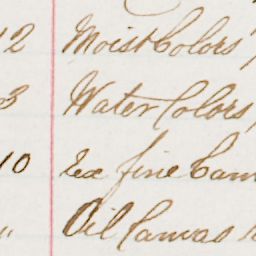 12 Moist Colors
3 Water Colors,
10 Ex fine Can
" Oil Canvas